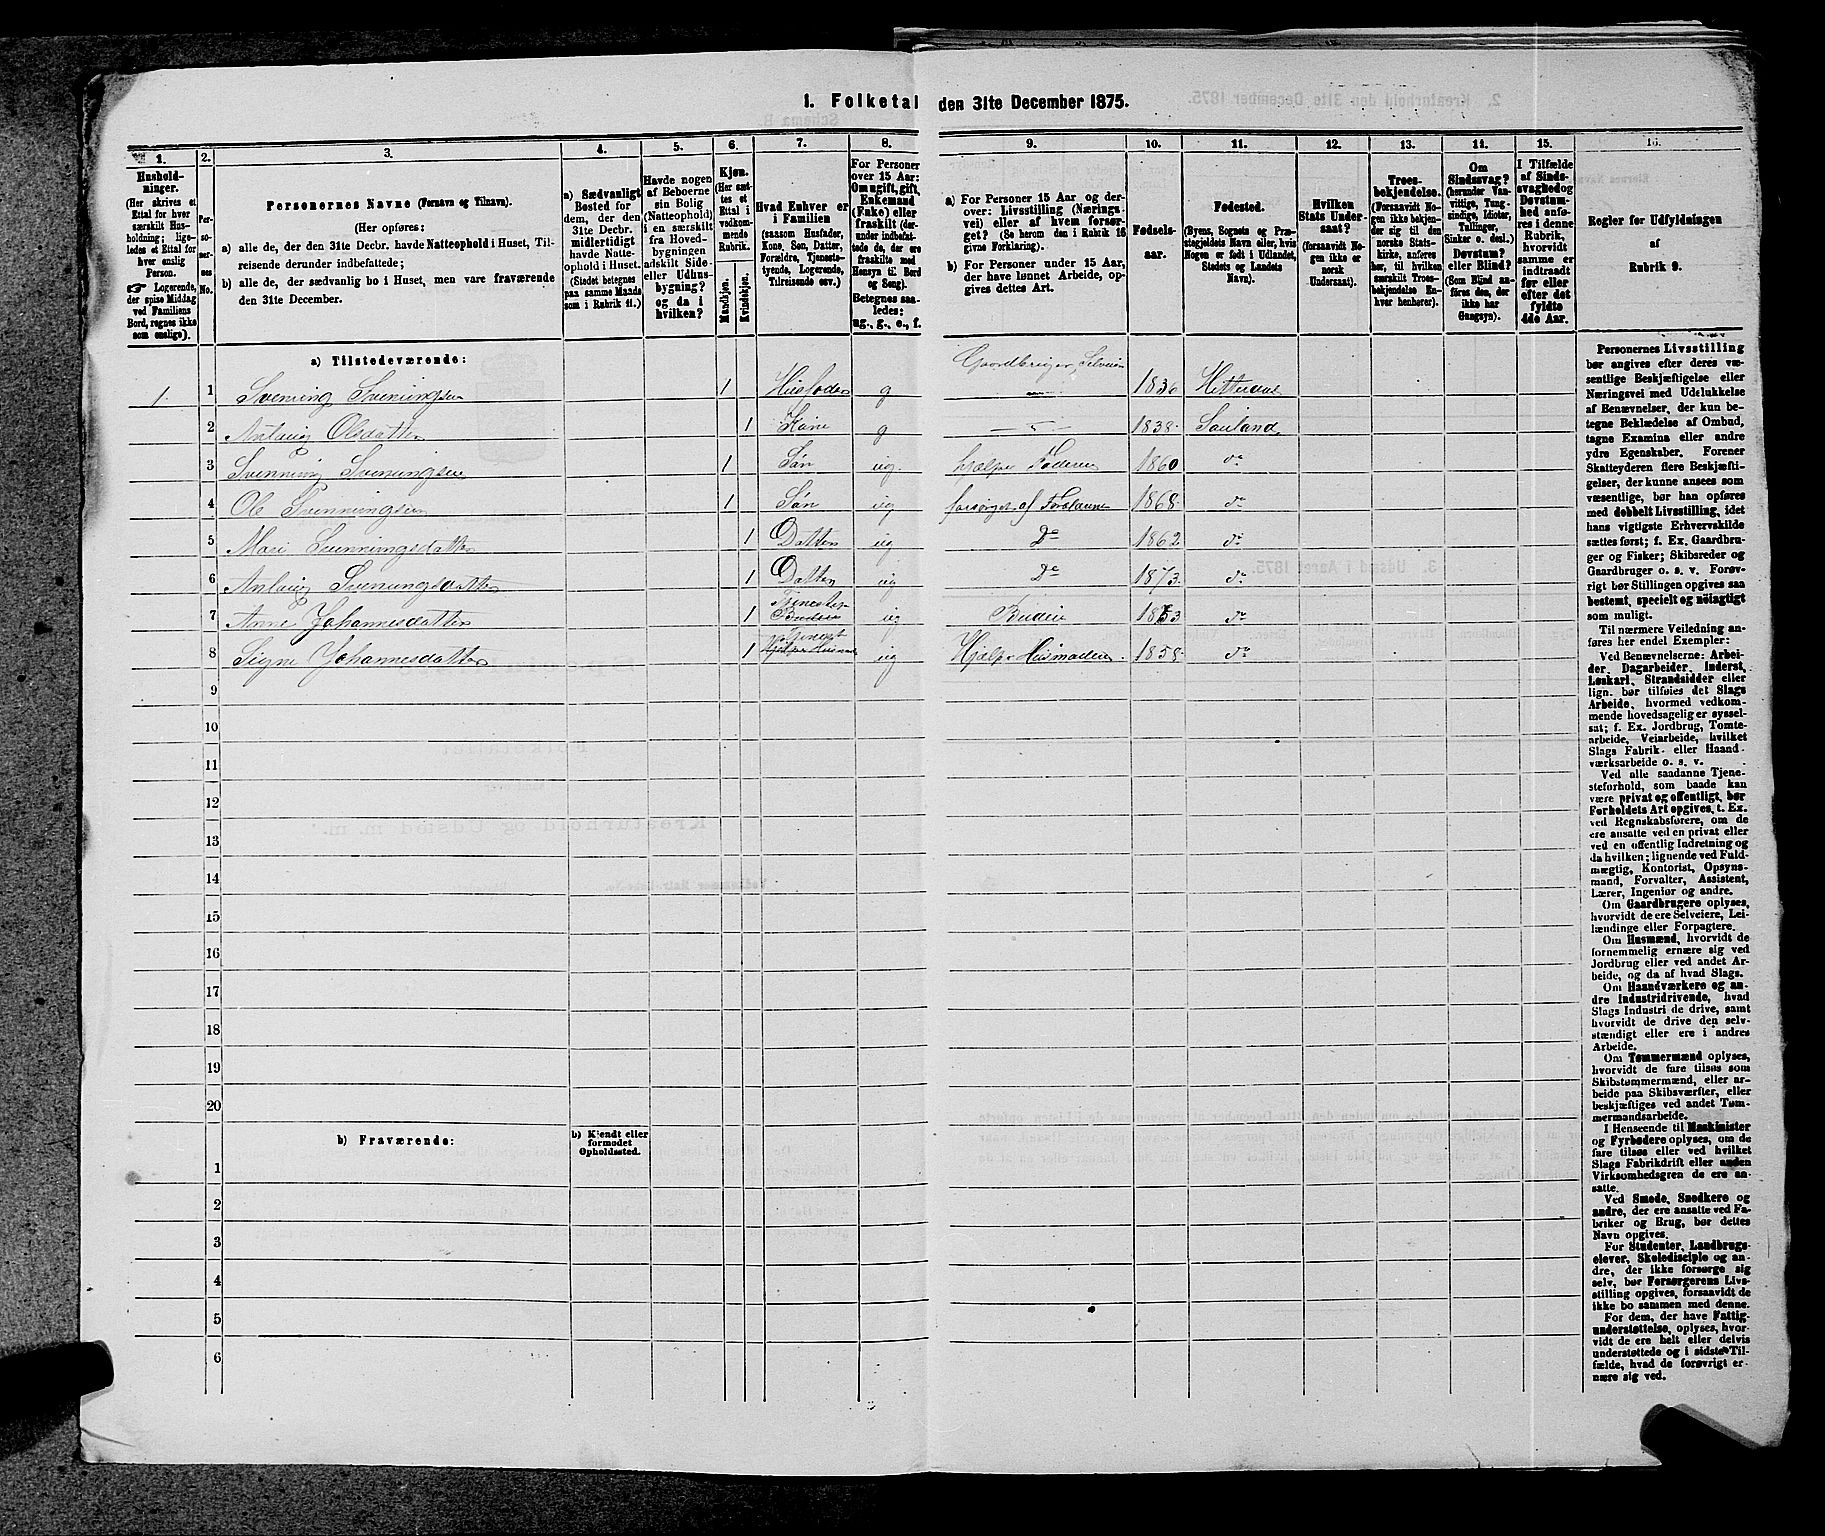 1. Folketal den 31te December 1875.
1.
Hushold-
ninger.
(Her skrives et
Ettal for hver
særskilt Hus-
holdning; lige-
ledes et Ettal for
hver enslig
Person.
☞ Logerende,
der spise Middag
ved Familiens
Bord, regnes ikke
som enslige).
2.
Per-
so-
ner-
nes
No.
3.
Personernes Navne (Fornavn og Tilnavn).
(Her opføres:
a) alle de, der den 31te Decbr. havde Natteophold i Huset, Til-
reisende derunder indbefattede;
b) alle de, der sædvanlig bo i Huset, men vare fraværende
den 31te December.
4.
a) Sædvanligt
Bosted for
dem, der den
31te Decbr.
midlertidigt
havde Natte-
ophold i Huset.
(Stedet betegnes
paa samme Maade
som i Rubrik 11.)
5.
Havde nogen
af Beboerne
sin Bolig
(Natteophold)
i en særskilt
fra Hoved-
bygningen
adskilt Side-
eller Udhus-
bygning?
og da i
hvilken?
6.
Kjøn.
(Her sæt-
tes et
Ettal i
vedkom-
mende
Rubrik.
Mandkjøn.
Kvindekjøn.
7.
Hvad Enhver er
i Familien
(saasom Husfader,
Kone, Søn, Datter,
Forældre, Tjeneste-
tyende, Logerende,
Tilreisende osv.)
8.
For Personer
over 15 Aar:
Om ugift, gift,
Enkemand
(Enke) eller
fraskilt (der-
under indbefat-
tede de, der ere
fraskilte med
Hensyn til Bord
og Seng).
Betegnes saa-
ledes:
ug., g., e., f.
9.
a) For Personer 15 Aar og der-
over: Livsstilling (Nærings-
vei) eller af hvem forsør-
get? (Se herom den i Rubrik 16
givne Forklaring).
b) For Personer under 15 Aar,
der have lønnet Arbeide, op-
gives dettes Art.
10.
Fødsels-
aar.
11.
Fødested.
(Byens, Sognets og Præ-
stegjeldets Navn eller, hvis
Nogen er født i Udlandet,
Stedets og Landets
Navn).
12.
Hvilken
Stats Under-
saat?
(forsaavidt No-
gen ikke er
norsk
Undersaat).
13.
Troes-
bekjendelse.
(Forsaavidt No-
gen ikke bekjen-
der sig til den
norske Stats-
kirke, anføres
her, til hvilken
særskilt Troes-
bekjendelse En-
hver henhører).
14.
Om
Sindssvag?
(herunder Van-
vittige, Tung-
sindige, Idioter,
Tullinger,
Sinker o. desl.)
Døvstum?
eller Blind?
(Som Blind an-
føres den, der
ikke har
Gangsyn).
15.
I Tilfælde
af Sinds-
svaghed og
Døvstum-
hed anfø-
res i denne
Rubrik,
hvorvidt
samme er
indtraadt
før eller
efter det
fyldte
4de Aar.
16.
Regler for Udfyldningen
af
Rubrik 9.
a) Tilstedeværende:
Gaardbruger Selveier
1. 1 Svenning Svenningsen 1 Husfader g — 1836 Hitterdal
2 Anlaug Olsdatter 1 Kone g — " — 1838 Sauland
3 Svenning Svenningsen 1 Søn ug. hjælper Faderen 1860 do
4 Ole Svenningsen 1 Søn ug forsørget af Forældrene 1868 do
5 Mari Svenningsdatter 1 Datter ug Do 1862 do
6 Anlaug Svenningsdatter 1 Datter ug Do 1873 do
7 Anne Johannesdatter 1 Tjenestep. Budeie ug Budeie 1853 do
8 Signe Johannesdatter 1 Tjenest hjelper Husmod ug Hjælper Husmoderen 1858 do
9
10
11
12
13
14
15
16
17
18
19
20
b) Fraværende:
b) Kjendt eller
formodet
Opholdssted.
1
2
3
4
5
6
Personernes Livsstilling
bør angives efter deres væ-
sentlige Beskjæftigelse eller
Næringsvei med Udelukkelse
af Benævnelser, der kun be-
tegne Beklædelse af Ombud,
tagne Examina eller andre
ydre Egenskaber. Forener
Skatteyderen flere Beskjæfti-
gelser, der kunne ansees som
væsentlige, bør han opføres
med dobbelt Livsstilling, idet
hans vigtigste Erhvervskilde
sættes først; f. Ex. Gaardbru-
ger og Fisker; Skibsreder og
Gaardbruger o. s. v. Forøv-
rigt bør Stillingen opgives saa
bestemt, specielt og nøiagtigt
som muligt.
Til nærmere Veiledning an-
føres her endel Exempler:
Ved Benævnelserne: Arbei-
der, Dagarbeider, Inderst,
Løskarl, Strandsidder eller
lign. bør tilføies det Slags
Arbeide, hvormed vedkom-
mende hovedsagelig er syssel-
sat; f. Ex. Jordbrug, Tomte-
arbeide, Veiarbeide, hvilket
Slags Fabrik- eller Haand-
værksarbeide o. s. v.
Ved alle saadanne Tjene-
steforhold, som baade kan
være privat og offentligt, bør
Forholdets Art opgives, t. Ex.
ved Regnskabsførere, om de
ere ansatte ved en privat eller
ved en offentlig Indretning og
da hvilken; lignende ved Fuld-
mægtig, Kontorist, Opsyns-
mand, Forvalter, Assistent,
Lærer, Ingeniør og andre.
Om Gaardbrugere oplyses,
hvorvidt de ere Selveiere, Lei-
lændinge eller Forpagtere.
Om Husmænd, hvorvidt de
fornemmelig ernære sig ved
Jordbrug eller ved andet Ar-
beide, og da af hvad Slags.
Om Haandværkere og an-
dre Industridrivende, hvad
Slags Industri de drive, samt
hvorvidt de drive den selv-
stændigt eller ere i andres
Arbeide.
Om Tømmermænd oplyses,
hvorvidt de fare tilsøs som
Skibstømmermænd, eller ar-
beide paa Skibsværfter, eller
beskjæftiges ved andet Tøm-
mermandsarbeide.
I Henseende til Maskinister
og Fyrbødere oplyses, om de
fare tilsøs eller ved hvilket
Slags Fabrikdrift eller anden
Virksomhedsgren de ere an-
satte.
Ved Smede, Snedkere og
andre, der ere ansatte ved Fa-
briker og Brug, bør dettes
Navn opgives.
For Studenter, Landbrugs-
elever, Skoledisciple og an-
dre, der ikke forsørge sig
selv, bør Forsørgerens Livs-
stilling opgives, forsaavidt de
ikke bo sammen med denne.
For dem, der have Fattig-
understøttelse, oplyses, hvor-
vidt de ere helt eller delvis
understøttede og i sidste Til-
fælde, hvad de forøvrigt er-
nære sig ved.